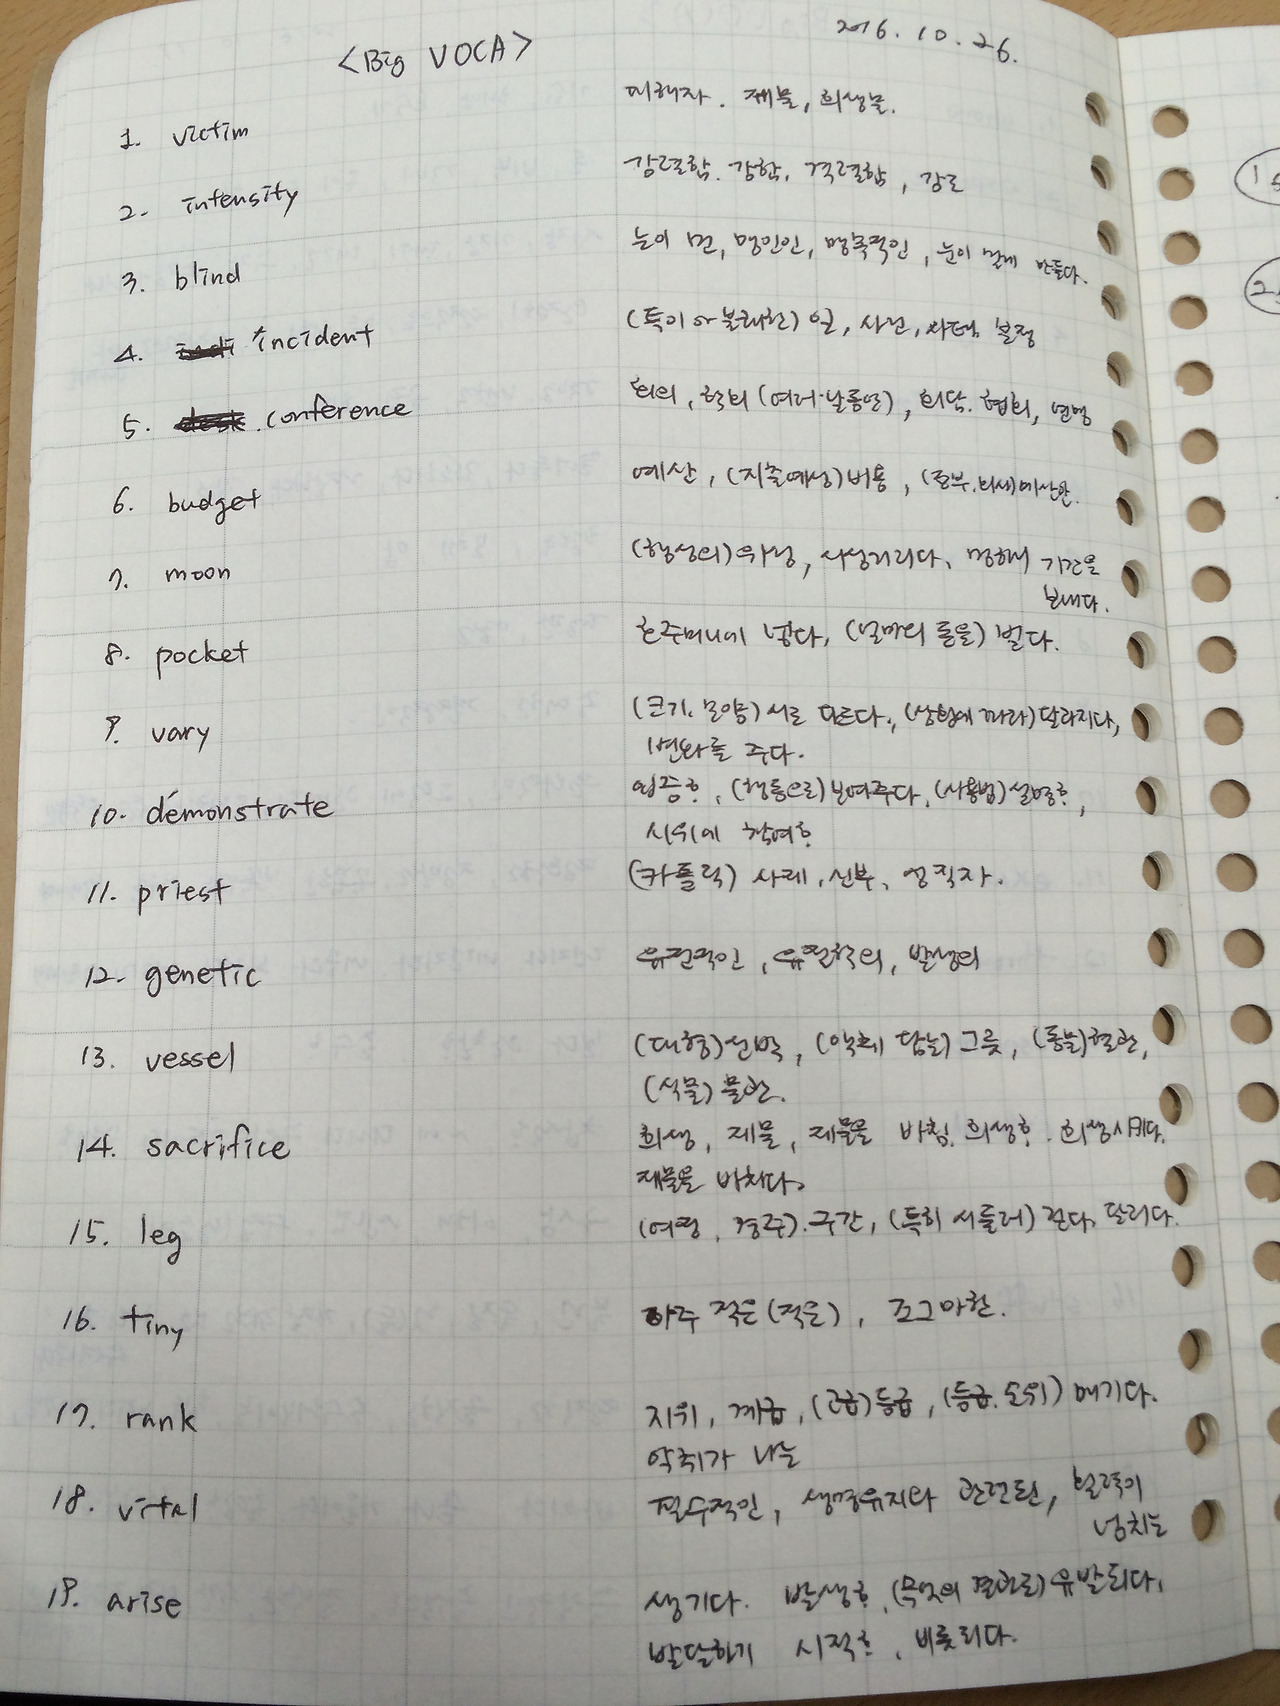 <Big VOCA>
2016. 10. 26.
1. victim 피해자. 제물, 희생물.
2. intensity 강렬함. 강함, 격렬함, 강도
3. blind 눈이 먼, 맹인인, 맹목적인, 눈이 멀게 만들다.
4. incident (특이 or 불쾌한) 일, 사건, 사태, 분쟁
5. conference 회의, 학회 (여러 날 동안), 회담. 협회, 연맹
6. budget 예산, (지출예상)비용, (정부, 회사)예산안.
7. moon (행성의)위성, 서성거리다, 멍하게 기간을
보내다.
8. pocket 호주머니에 넣다, (얼마의 돈을) 벌다.
9. vary (크기, 모양등)서로 다르다, (상황에 따라)달라지다,
변화를 주다.
10. démonstrate 입증ㅎ, (행동으로)보여주다, (사용법)설명ㅎ,
시위에 참여ㅎ
11. priest (카톨릭) 사제, 신부, 성직자.
12. genetic 유전적인, 유전학의, 발생의
13. vessel (대형)선박, (액체 담는)그릇, (동물)혈관,
(식물) 물관.
14. sacrifice 희생, 제물, 제물을 바침, 희생ㅎ. 희생시키다.
제물을 바치다.
15. leg (여정, 경주).구간, (특히 서둘러) 걷다, 달리다.
16. tiny 아주 작은(적은), 조그마한.
17. rank 지위, 계급, (고급)등급, (등급, 순위) 매기다.
악취가 나는
18. vital 필수적인, 생명유지와 관련된, 활력이
넘치는
19. arise 생기다. 발생ㅎ, (무엇의 결과로)유발되다,
발달하기 시작ㅎ, 비롯되다.